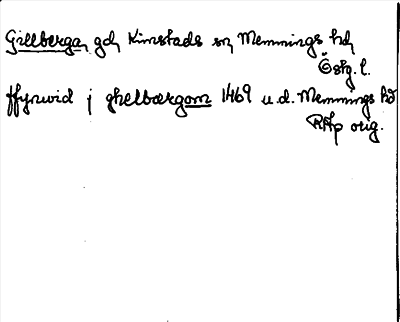 Gillberga, gd, Kimstads sn, Memmings hd,
Östg. l.
ffyrwid j ghelbærgom 1469 u.d. Memmings hd
RAp orig.